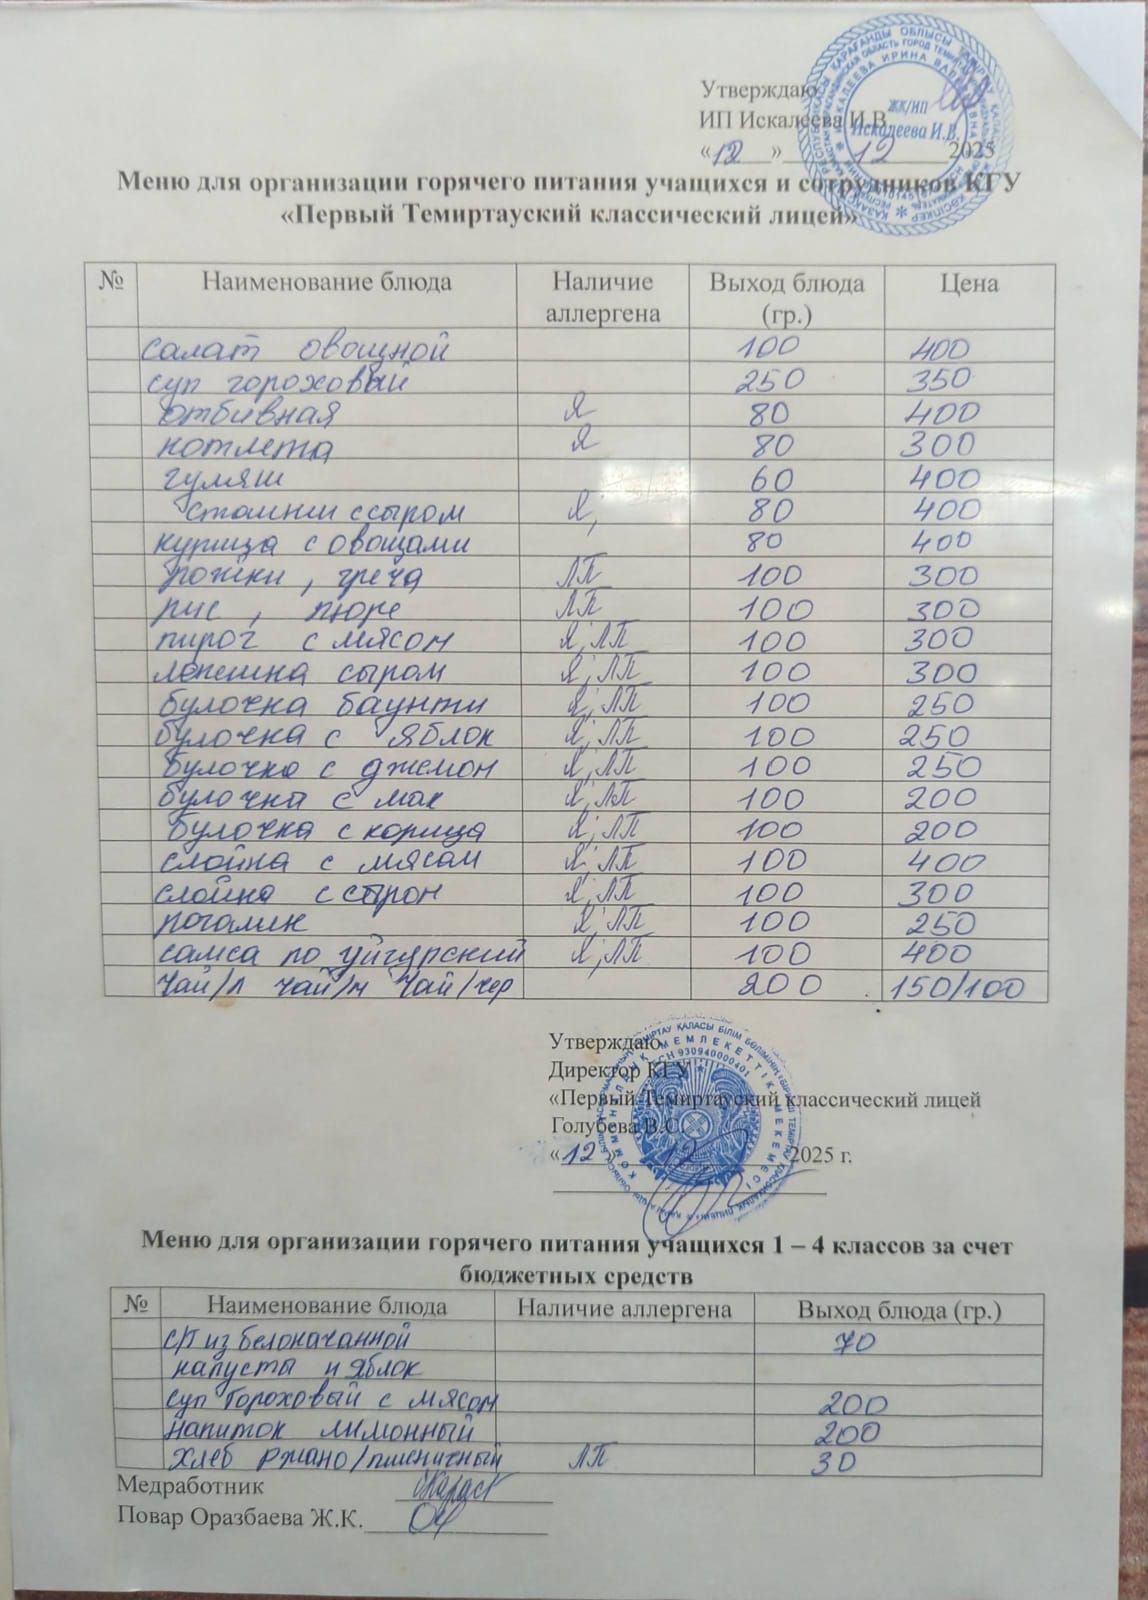 Утверждаю
ИП Искалеева И.В.
«12» 12 2025
ЖК/ИП
Искалеева И.В.
Меню для организации горячего питания учащихся и сотрудников КГУ
«Первый Темиртауский классический лицей»
№ Наименование блюда Наличие аллергена Выход блюда (гр.) Цена
салат овощной 100 400
суп гороховый 250 350
отбивная Я 80 400
котлета Я 80 300
гуляш 60 400
с сыром Я, 80 400
курица с овощами 80 400
рожки, греча ЛП 100 300
рис, пюре ЛП 100 300
пирог с мясом Я, ЛП 100 300
лепешка сыром Я, ЛП 100 300
булочка баунти Я, ЛП 100 250
булочка с яблок Я, ЛП 100 250
булочка с джемом Я, ЛП 100 250
булочка с мак Я, ЛП 100 200
булочка с корица Я, ЛП 100 200
слойка с мясом Я, ЛП 100 400
слойка с сыром Я, ЛП 100 300
рогалик Я, ЛП 100 250
самса по уйгурский Я, ЛП 100 400
чай/л чай/м чай/чер 200 150/100
Утверждаю
Директор КГУ
«Первый Темиртауский классический лицей
Голубева В.С.
«12» 12 2025 г.
Меню для организации горячего питания учащихся 1 – 4 классов за счет
бюджетных средств
№ Наименование блюда Наличие аллергена Выход блюда (гр.)
с/т из белокачанной 70
капусты и яблок
суп гороховый с мясом 200
напиток лимонный 200
хлеб ржано/пшеничный ЛП 30
Медработник
Повар Оразбаева Ж.К.